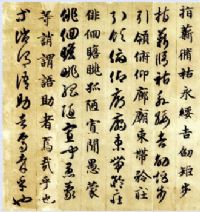 指薪脩祜永綏吉劭矩步
指薪脩祜永綏吉劭矩步
引領俯仰廊廟束帶矜莊
引領俯仰廊廟束帶矜莊
徘徊瞻眺孤陋寡聞愚蒙
徘徊瞻眺孤陋寡聞愚蒙
等誚謂語助者焉哉乎也
等誚謂語助者焉哉乎也